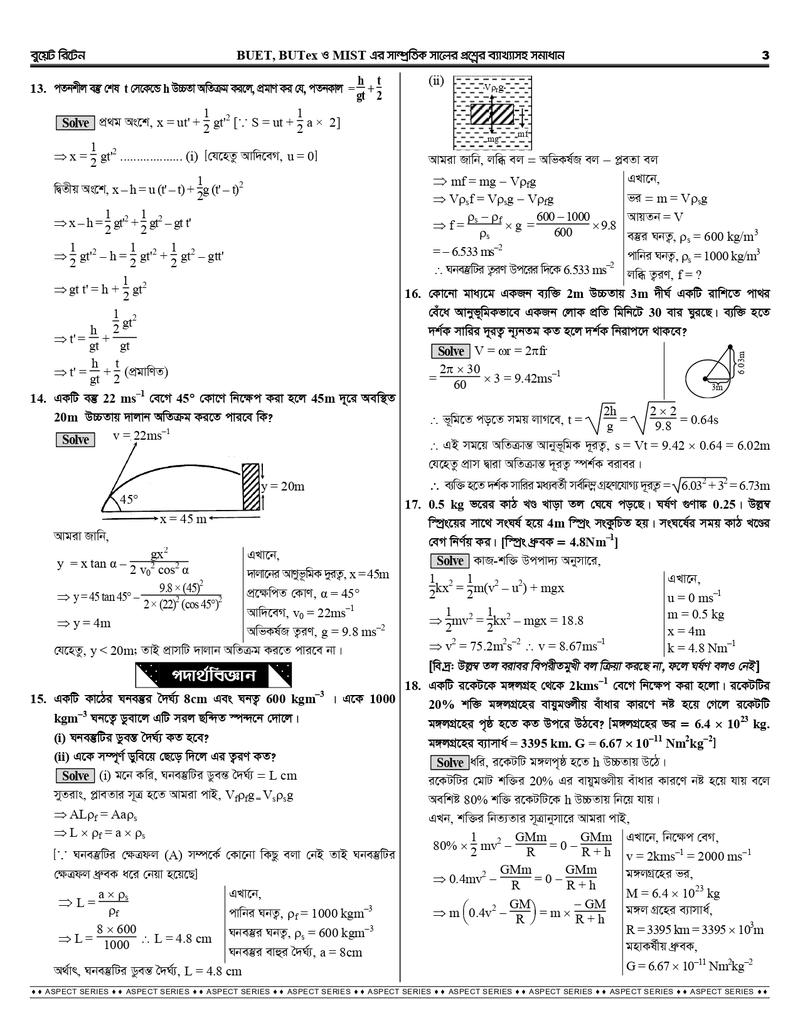 বুয়েট রিটেন
BUET, BUTex ও MIST এর সাম্প্রতিক সালের প্রশ্নের ব্যাখ্যাসহ সমাধান
3
13. পতনশীল বস্তু শেষ t সেকেন্ডে h উচ্চতা অতিক্রম করলে, প্রমাণ কর যে, পতনকাল = h/gt + t/2
Solve প্রথম অংশে, x = ut' + 1/2 gt'² [∵ S = ut + 1/2 a × 2]
⇒ x = 1/2 gt'² ................... (i) [যেহেতু আদিবেগ, u = 0]
দ্বিতীয় অংশে, x – h = u (t' – t) + 1/2 g (t' – t)²
⇒ x – h = 1/2 gt'² + 1/2 gt² – gt t'
⇒ 1/2 gt'² – h = 1/2 gt'² + 1/2 gt² – gtt'
⇒ gt t' = h + 1/2 gt²
⇒ t' = h/gt + 1/2 gt²/gt
⇒ t' = h/gt + t/2 (প্রমাণিত)
14. একটি বস্তু 22 ms⁻¹ বেগে 45° কোণে নিক্ষেপ করা হলে 45m দূরে অবস্থিত
20m উচ্চতায় দালান অতিক্রম করতে পারবে কি?
Solve
v = 22ms⁻¹
y = 20m
45°
x = 45 m
আমরা জানি,
y = x tan α – gx²/2 v₀² cos² α
⇒ y = 45 tan 45° – 9.8 × (45)²/2 × (22)² (cos 45°)²
⇒ y = 4m
এখানে,
দালানের আণুভূমিক দূরত্ব, x = 45m
প্রক্ষেপিত কোণ, α = 45°
আদিবেগ, v₀ = 22ms⁻¹
অভিকর্ষজ ত্বরণ, g = 9.8 ms⁻²
যেহেতু, y < 20m; তাই প্রাসটি দালান অতিক্রম করতে পারবে না।
পদার্থবিজ্ঞান
15. একটি কাঠের ঘনবস্তুর দৈর্ঘ্য 8cm এবং ঘনত্ব 600 kgm⁻³ । একে 1000
kgm⁻³ ঘনত্বে ডুবালে এটি সরল ছন্দিত স্পন্দনে দোলে।
(i) ঘনবস্তুটির ডুবন্ত দৈর্ঘ্য কত হবে?
(ii) একে সম্পূর্ণ ডুবিয়ে ছেড়ে দিলে এর ত্বরণ কত?
Solve (i) মনে করি, ঘনবস্তুটির ডুবন্ত দৈর্ঘ্য = L cm
সুতরাং, প্লাবতার সূত্র হতে আমরা পাই, Vfρfg = Vsρsg
⇒ ALρf = Aaρs
⇒ L × ρf = a × ρs
[∵ ঘনবস্তুটির ক্ষেত্রফল (A) সম্পর্কে কোনো কিছু বলা নেই তাই ঘনবস্তুটির
ক্ষেত্রফল ধ্রুবক ধরে নেয়া হয়েছে]
⇒ L = a × ρs/ρf
⇒ L = 8 × 600/1000 ∴ L = 4.8 cm
এখানে,
পানির ঘনত্ব, ρf = 1000 kgm⁻³
ঘনবস্তুর ঘনত্ব, ρs = 600 kgm⁻³
ঘনবস্তুর বাহুর দৈর্ঘ্য, a = 8cm
অর্থাৎ, ঘনবস্তুটির ডুবন্ত দৈর্ঘ্য, L = 4.8 cm
(ii)
Vρfg
mg
mf
আমরা জানি, লব্ধি বল = অভিকর্ষজ বল – প্লবতা বল
⇒ mf = mg – Vρfg
⇒ Vρsf = Vρsg – Vρfg
⇒ f = ρs – ρf/ρs × g = 600 – 1000/600 × 9.8
= – 6.533 ms⁻²
∴ ঘনবস্তুটির ত্বরণ উপরের দিকে 6.533 ms⁻²
এখানে,
ভর = m = Vρsg
আয়তন = V
বস্তুর ঘনত্ব, ρs = 600 kg/m³
পানির ঘনত্ব, ρs = 1000 kg/m³
লব্ধি ত্বরণ, f = ?
16. কোনো মাধ্যমে একজন ব্যক্তি 2m উচ্চতায় 3m দীর্ঘ একটি রাশিতে পাথর
বেঁধে আনুভূমিকভাবে একজন লোক প্রতি মিনিটে 30 বার ঘুরছে। ব্যক্তি হতে
দর্শক সারির দূরত্ব ন্যূনতম কত হলে দর্শক নিরাপদে থাকবে?
Solve V = ωr = 2πfr
= 2π × 30/60 × 3 = 9.42ms⁻¹
6.03m
3m
∴ ভূমিতে পড়তে সময় লাগবে, t = √(2h/g) = √(2 × 2/9.8) = 0.64s
∴ এই সময়ে অতিক্রান্ত আনুভূমিক দূরত্ব, s = Vt = 9.42 × 0.64 = 6.02m
যেহেতু প্রাস দ্বারা অতিক্রান্ত দূরত্ব স্পর্শক বরাবর।
∴ ব্যক্তি হতে দর্শক সারির মধ্যবর্তী সর্বনিম্ন গ্রহণযোগ্য দূরত্ব = √(6.03² + 3²) = 6.73m
17. 0.5 kg ভরের কাঠ খণ্ড খাড়া তল ঘেষে পড়ছে। ঘর্ষণ গুণাঙ্ক 0.25। উল্লম্ব
স্প্রিংয়ের সাথে সংঘর্ষ হয়ে 4m স্প্রিং সংকুচিত হয়। সংঘর্ষের সময় কাঠ খণ্ডের
বেগ নির্ণয় কর। [স্প্রিং ধ্রুবক = 4.8Nm⁻¹]
Solve কাজ-শক্তি উপপাদ্য অনুসারে,
1/2 kx² = 1/2 m(v² – u²) + mgx
⇒ 1/2 mv² = 1/2 kx² – mgx = 18.8
⇒ v² = 75.2m²s⁻² ∴ v = 8.67ms⁻¹
এখানে,
u = 0 ms⁻¹
m = 0.5 kg
x = 4m
k = 4.8 Nm⁻¹
[বি.দ্র: উল্লম্ব তল বরাবর বিপরীতমুখী বল ক্রিয়া করছে না, ফলে ঘর্ষণ বলও নেই]
18. একটি রকেটকে মঙ্গলগ্রহ থেকে 2kms⁻¹ বেগে নিক্ষেপ করা হলো। রকেটটির
20% শক্তি মঙ্গলগ্রহের বায়ুমণ্ডলীয় বাঁধার কারণে নষ্ট হয়ে গেলে রকেটটি
মঙ্গলগ্রহের পৃষ্ঠ হতে কত উপরে উঠবে? [মঙ্গলগ্রহের ভর = 6.4 × 10²³ kg.
মঙ্গলগ্রহের ব্যাসার্ধ = 3395 km. G = 6.67 × 10⁻¹¹ Nm²kg⁻²]
Solve ধরি, রকেটটি মঙ্গলপৃষ্ঠ হতে h উচ্চতায় উঠে।
রকেটটির মোট শক্তির 20% এর বায়ুমণ্ডলীয় বাঁধার কারণে নষ্ট হয়ে যায় বলে
অবশিষ্ট 80% শক্তি রকেটটিকে h উচ্চতায় নিয়ে যায়।
এখন, শক্তির নিত্যতার সূত্রানুসারে আমরা পাই,
80% × 1/2 mv² – GMm/R = 0 – GMm/R + h
⇒ 0.4mv² – GMm/R = 0 – GMm/R + h
⇒ m (0.4v² – GM/R) = m × – GM/R + h
এখানে, নিক্ষেপ বেগ,
v = 2kms⁻¹ = 2000 ms⁻¹
মঙ্গলগ্রহের ভর,
M = 6.4 × 10²³ kg
মঙ্গল গ্রহের ব্যাসার্ধ,
R = 3395 km = 3395 × 10³m
মহাকর্ষীয় ধ্রুবক,
G = 6.67 × 10⁻¹¹ Nm²kg⁻²
♦♦ ASPECT SERIES ♦♦ ASPECT SERIES ♦♦ ASPECT SERIES ♦♦ ASPECT SERIES ♦♦ ASPECT SERIES ♦♦ ASPECT SERIES ♦♦ ASPECT SERIES ♦♦ ASPECT SERIES ♦♦ ASPECT SERIES ♦♦